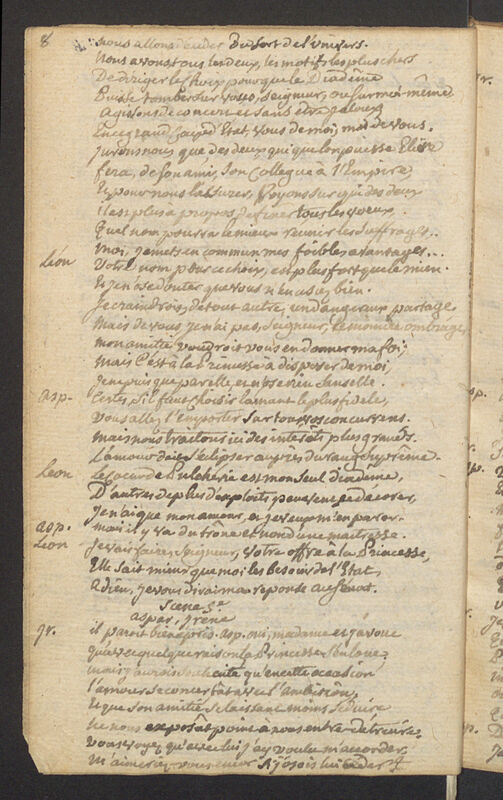 8 nous allons décider du sort de l'univers.
nous avons tous les deux, les motifs les plus chers
De diriger le choix pour que le Diadême
Puisse tomber sur vous, seigneur, ou sur moi-même
agissons de concert et sans être jaloux
En ce grand coup d'Etat, vous de moi, moi de vous.
jurons nous que des deux qui que l'on puisse Elire
fera, de son ami, son Collegue à l'Empire,
Et pour nous l'assurer, voyons sur qui des deux
il est plus à propos de fixer tous les voeux.
Quel nom pourra le mieux réunir les suffrages.
moi, je mets en commun mes foibles avantages...
Léon Votre nom pour ce choix, est plus fort que le mien.
Et je n'ose douter que vous n'en usiez bien.
Je craindrois, de tout autre, un dangereux partage,
Mais de vous, je n'ai pas, Seigneur, le moindre ombrage
mon amitié voudroit vous en donner ma foi,
mais C'est à la Princesse à disposer de moi,
je ne puis que par elle, et n'ose rien sans elle.
asp. Certes, s'il faut choisir l'amant le plus fidele,
vous allez l'emporter sur tous vos concurrens.
mais nous traitons ici des interêts plus grands.
L'amour doit s'éclipser auprès du rang suprême.
Leon Le coeur de Pulcherie est mon seul diadême,
D'autres de plus d'exploits peuvent se décorer,
Je n'ai que mon amour, et je veux m'en parer.
asp. mais il y va du trône et non d'une maîtresse.
Leon Je vais faire, Seigneur, votre offre à la Princesse,
Elle sait mieux que moi les besoins de l'Etat
adieu, je vous dirai ma reponse au Senat.
Scene 5e
aspar, irene
Ir. il paroit bien épris. asp. oui, madame et j'avoue
qu'avec quelque raison la Princesse s'en loue,
mais j'aurois souhaité qu'en cette occasion
l'amour se concertât avec l'ambition,
Et que son amitié se laissant moins séduire
Ne nous exposât point à nous entre-détruire,
vous voyez qu'avec lui j'ay voulu m'accorder,
M'aimeriez-vous encor si j'osois lui céder